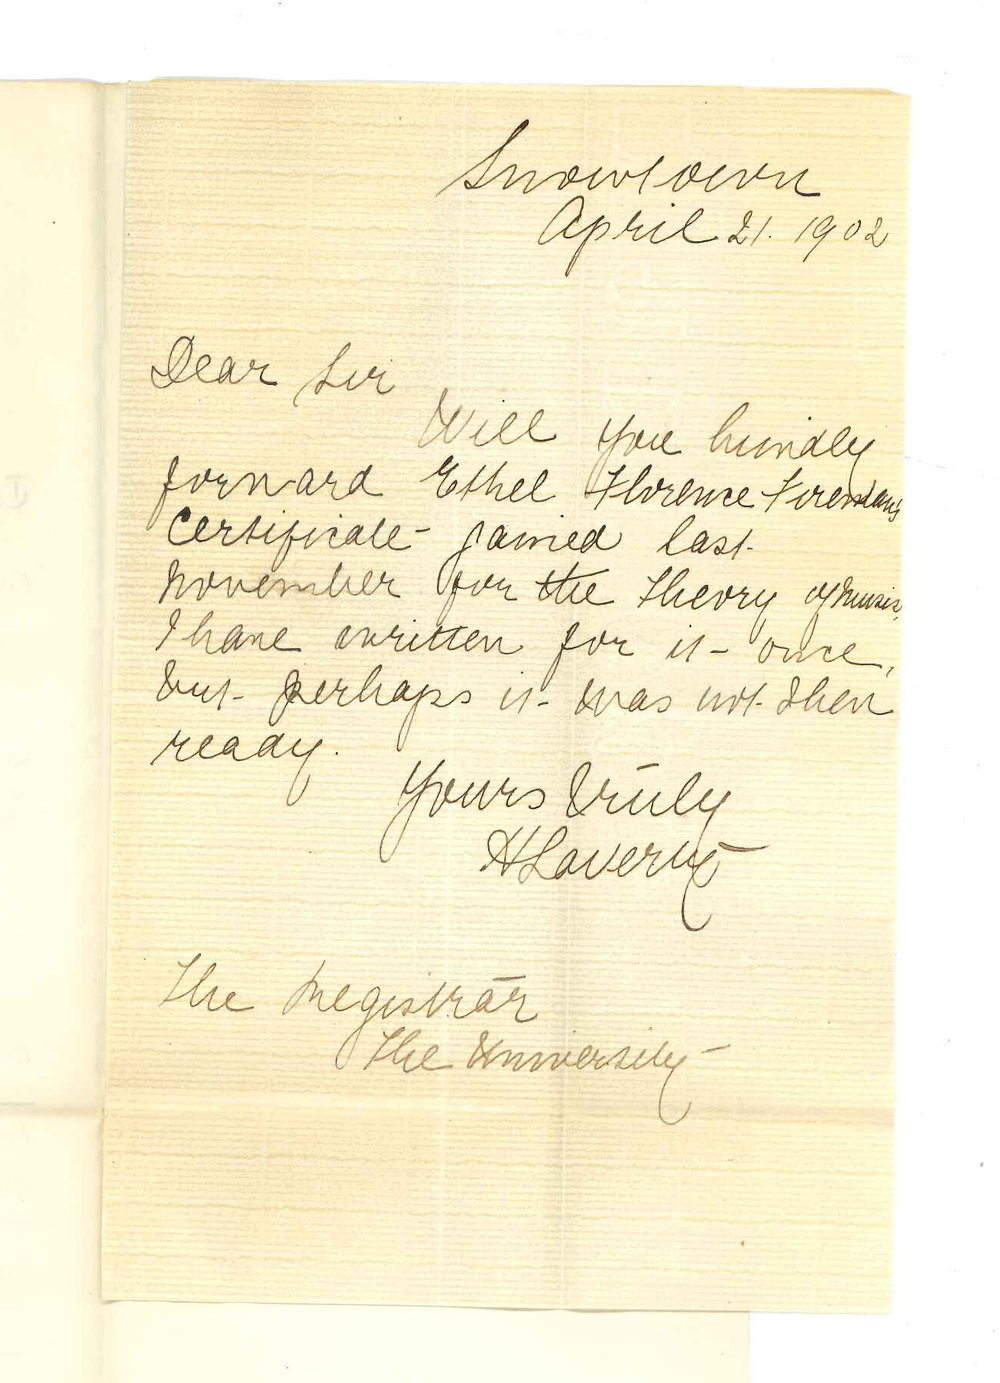 Snowtown
April 21. 1902
Dear Sir
Will you kindly
forward Ethel Florence Fireman's
Certificate gained last
November for the Theory of Music,
I have written for it once,
but perhaps it was not then
ready.
Yours truly
H Laverty
The Registrar
The University